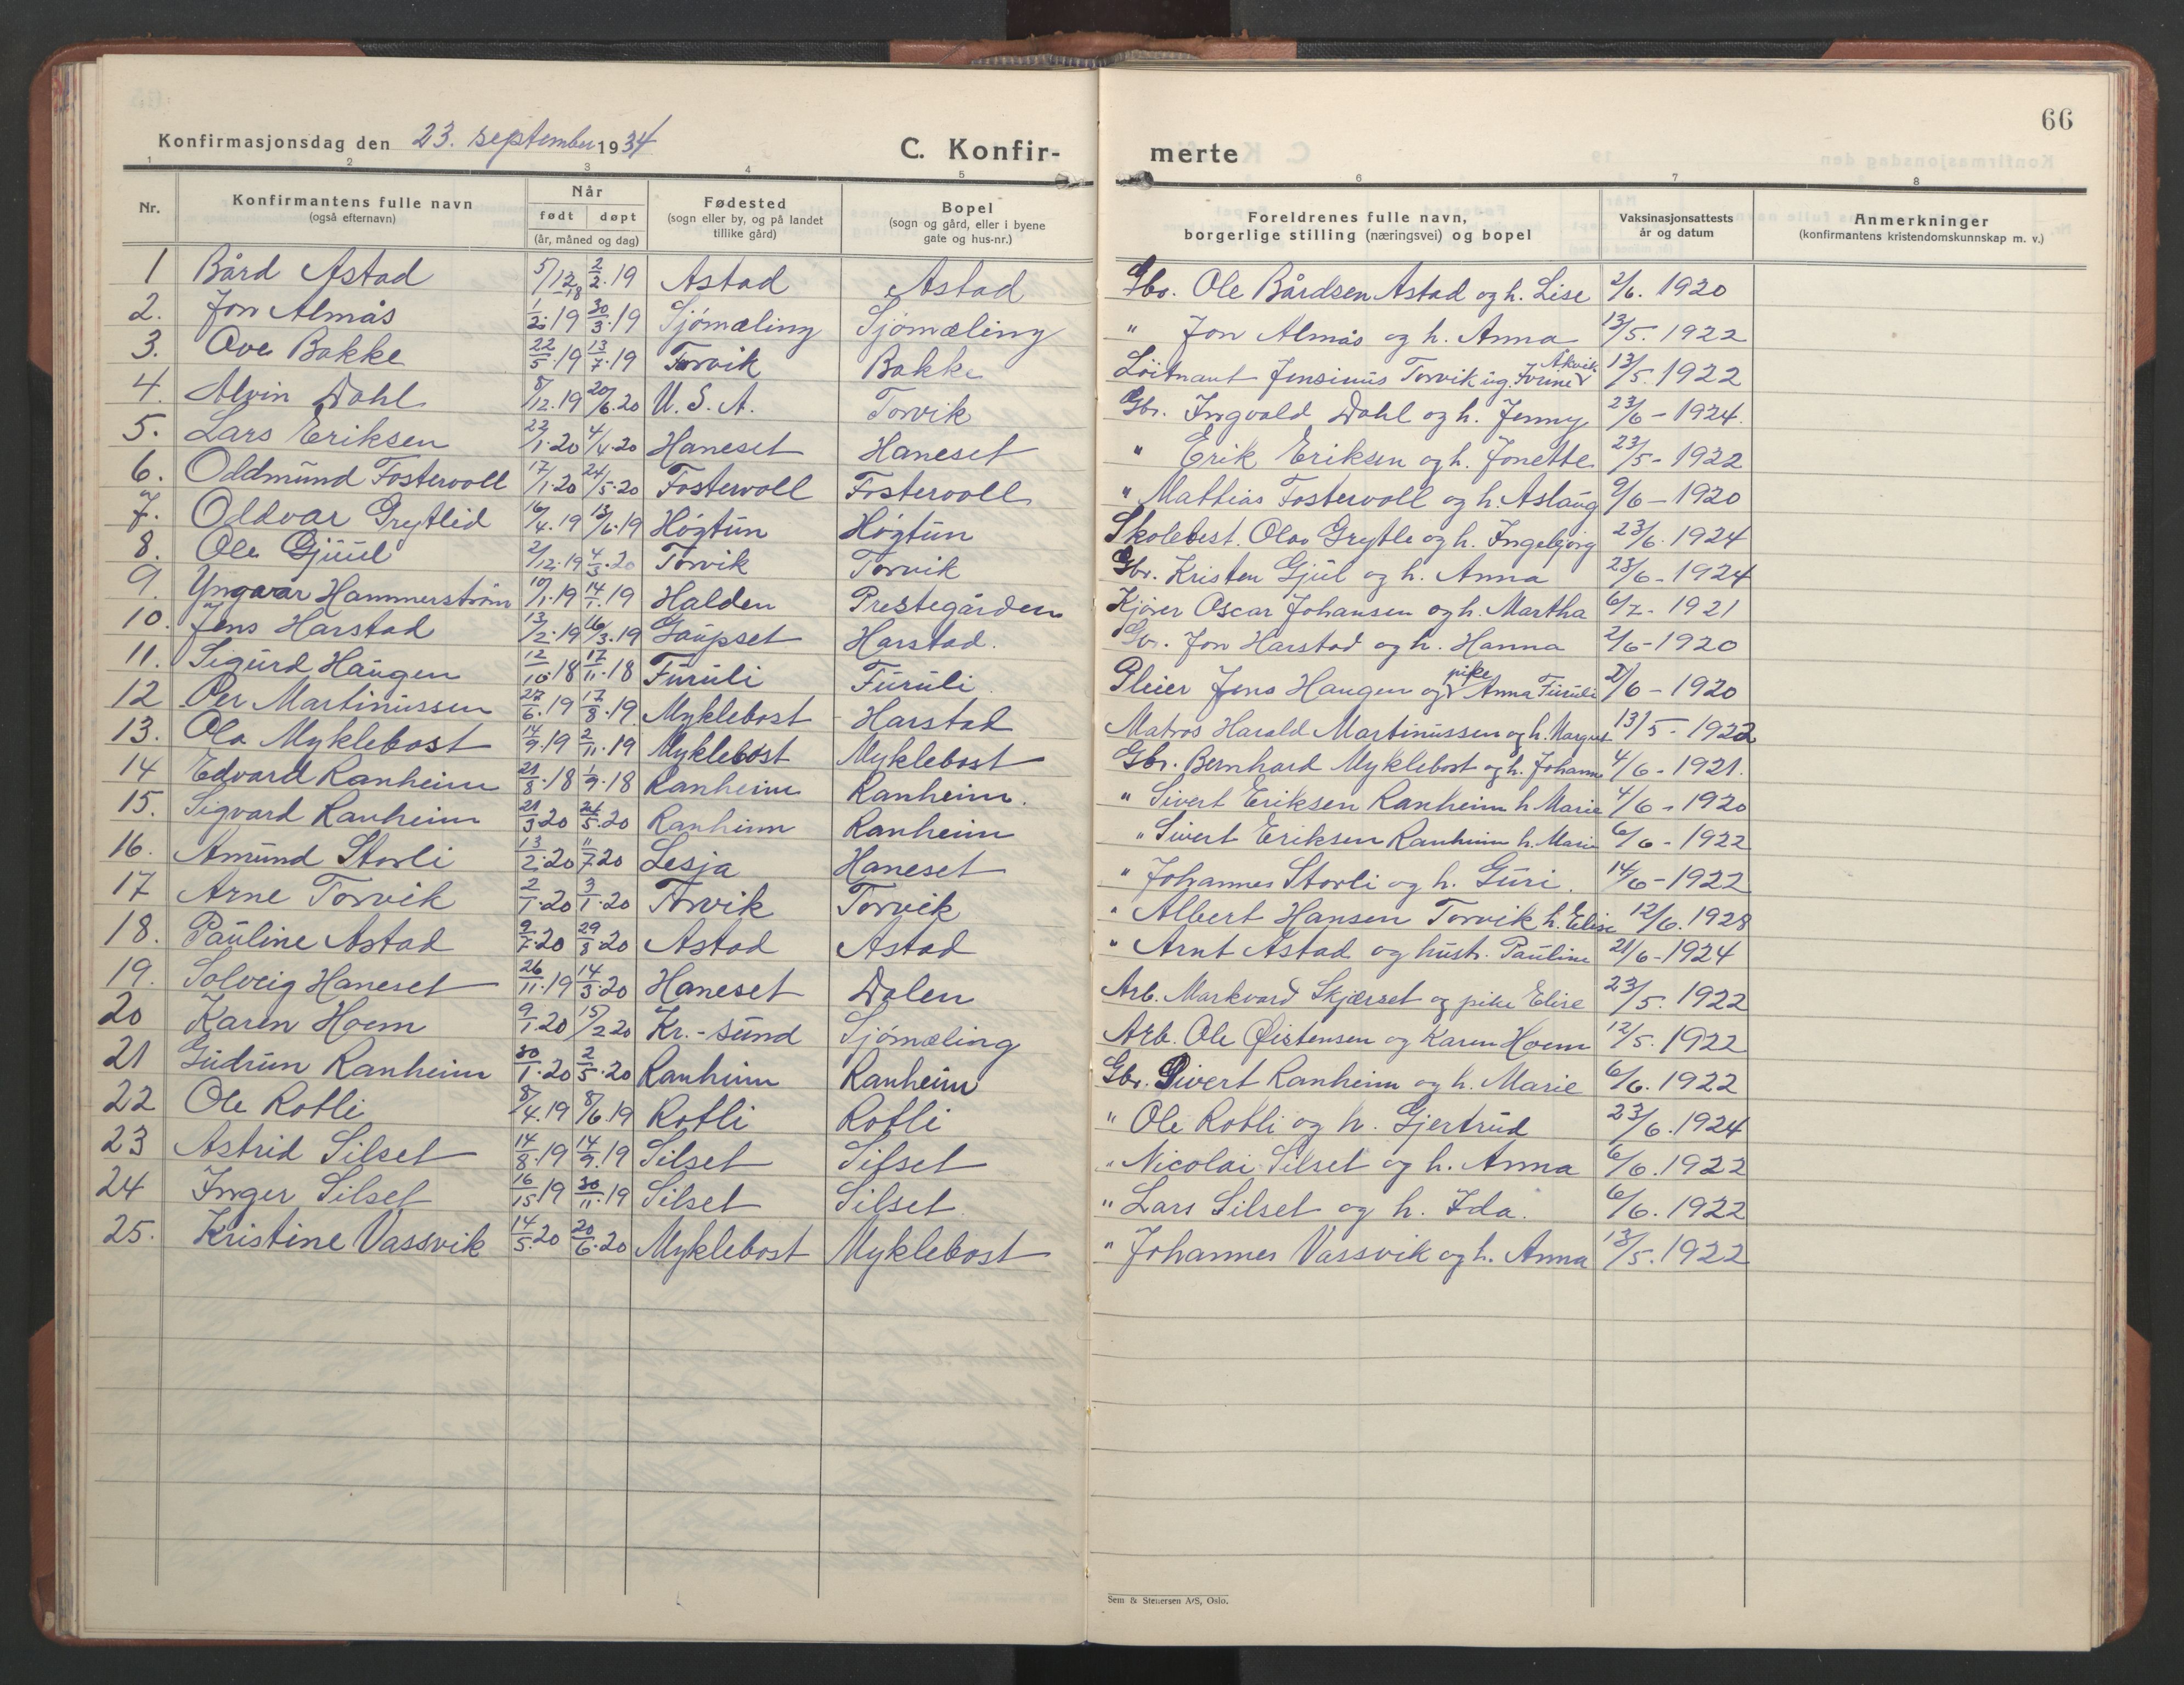 66
Konfirmasjonsdag den 23. september 1934 C. Konfir- merte
1 2 3 4 5 6 7 8
Nr. Konfirmantens fulle navn (også efternavn) Når født døpt (år, måned og dag) Fødested (sogn eller by, og på landet tillike gård) Bopel (sogn og gård, eller i byene gate og hus-nr.) Foreldrenes fulle navn, borgerlige stilling (næringsvei) og bopel Vaksinasjonsattests år og datum Anmerkninger (konfirmantens kristendomskunnskap m. v.)
1 Bård Astad 5/12 18 2/2.19 Astad Astad Gbr. Ole Bårdsen Astad og h. Lise 2/6. 1920
2. Jon Almås 1/2.19 30/3.19 Sjømæling Sjømæling " Jon Almås og h. Anna 13/5. 1922
3. Ove Bakke 22/5.19 13/7.19 Torvik Bakke Löitnant Jensinus Torvik ug. Åkvik 13/5. 1922
4. Alvin Dahl 8/12.19 20/6.20 U.S.A. Torvik Gbr. Ingvald Dahl og h. Jenny 23/6 - 1924.
5. Lars Eriksen 22/1.20 4/4.20 Haneset Haneset " Erik Eriksen og h. Jonette 23/5 - 1922
6. Oddmund Fostervoll 17/1.20 24/5.20 Fostervoll Fostervoll " Mathias Fostervoll og h. Aslaug 9/6 - 1920
7. Oldvar Grytlid 16/4.19 13/6.19 Høgtun Høgtun Skolebest. Olav Grytle og h. Ingebjørg 23/6. 1924
8. Ole Gjuul 2/12.19 4/3.20 Torvik Torvik Gbr. Kristen Gjul og h. Anna 23/6 - 1924
9. Yngvar Hammerstrøm 10/1.19 14/1.19 Halden Prestegården Kjører Oscar Johansen og h. Martha 6/7 - 1921
10. Jens Harstad 13/2.19 16/3.19 Gaupset Harstad. Gbr. Jon Harstad og h. Hanna 2/6 - 1920
11. Sigurd Haugen 12/10.18 17/11.18 Furuli Furuli Pleier Jens Haugen og pike Anna Furuli 2/6 - 1920
12 Per Martinussen 27/6.19 17/8.19 Myklebost Harstad Matros Harald Martinussen og h. Margret 13/5 - 1922
13. Ola Myklebost 14/9.19 2/11.19 Myklebost Myklebost Gbr. Bernhard Myklebost og h. Johanne 4/6 - 1921.
14 Edvard Ranheim 21/8.18 1/9.18 Ranheim Ranheim. " Sivert Eriksen Ranheim h. Marie 4/6 - 1920
15. Sigvard Ranheim 21/3 20 24/5.20 Ranheim Ranheim " Sivert Eriksen Ranheim h. Marie 6/6 - 1922
16. Amund Storli 13/2.20 11/7 20 Lesja Haneset " Johannes Storli og h. Guri. 14/6 - 1922
17 Arne Torvik 2/1.20 3/1.20 Torvik Torvik " Albert Hansen Torvik h. Elise 12/6. 1928
18. Pauline Astad 9/7.20 29/8.20 Astad Astad " Arnt Astad og hustr. Pauline 21/6 - 1924
19. Solveig Haneset 26/11.19 14/3.20 Haneset Dalen Arb. Markvard Skjærset og pike Elise 23/5. 1922
20 Karen Hoem 9/1.20 15/2 20 Kr.-sund Sjømæling Arb. Ole Øistensen og Karen Hoem 12/5. 1922
21 Gudrun Ranheim 30/1.20 2/5.20 Ranheim Ranheim Gbr. Sivert Ranheim og h. Marie 6/6. 1922
22 Ole Rotli 8/4.19 8/6.19 Rotli Rotli " Ole Rotli og h. Gjertrud 23/6. 1924
23 Astrid Silset 14/8.19 14/9.19 Silset Silset " Nicolai Silset og h. Anna 6/6. 1922
24 Inger Silset 16/15 19 30/11.19 Silset Silset " Lars Silset og h. Ida. 6/6. 1922
25. Kristine Vassvik 14/5.20 20/6.20 Myklebost Myklebost " Johannes Vassvik og h. Anna 13/5. 1922
Sem & Stenersen A/S, Oslo.